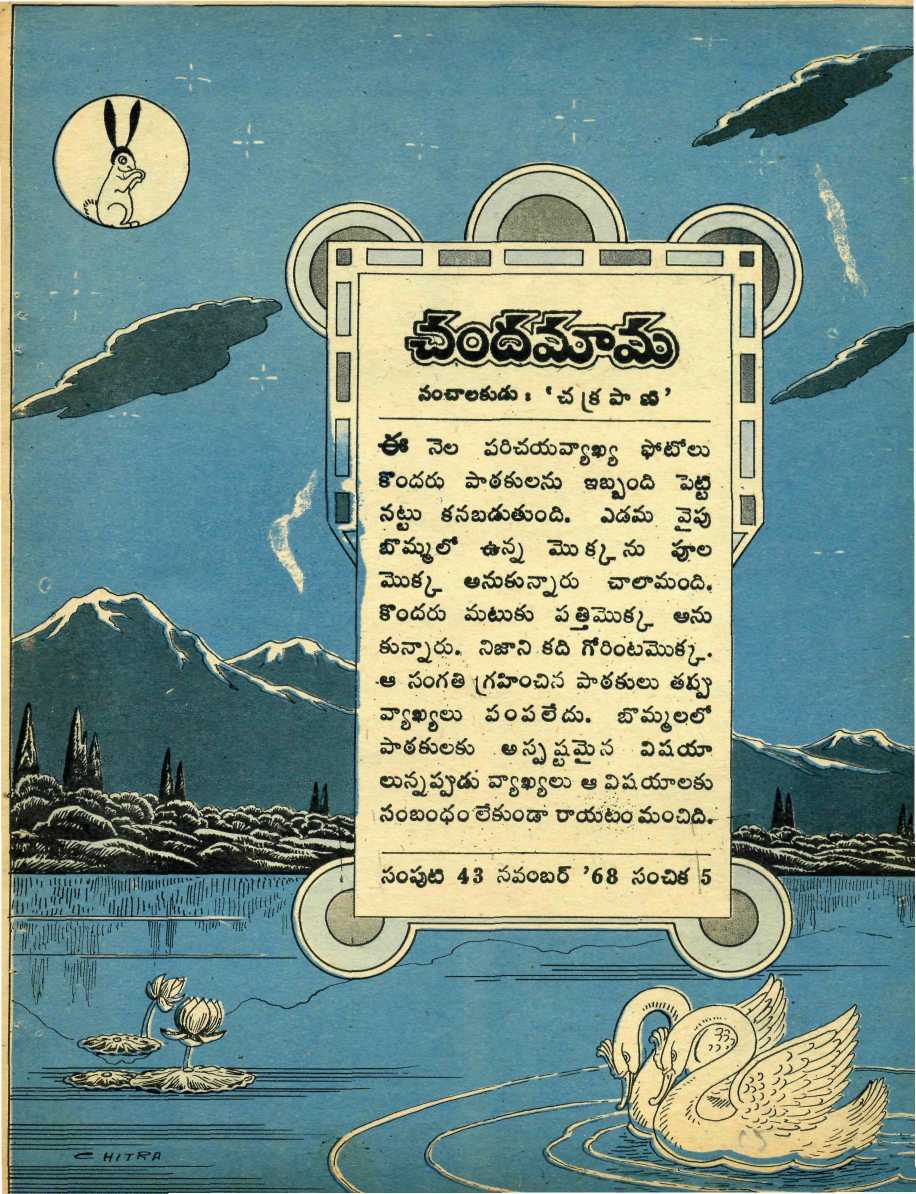 చందమామ
సంచాలకుడు : ' చ క్ర పా ణి '
ఈ నెల పరిచయవ్యాఖ్య ఫోటోలు
కొందరు పాఠకులను ఇబ్బంది పెట్టి
నట్టు కనబడుతుంది. ఎడమ వైపు
బొమ్మలో ఉన్న మొక్కను పూల
మొక్క అనుకున్నారు చాలామంది.
కొందరు మటుకు పత్తిమొక్క అను
కున్నారు. నిజాని కది గోరింటమొక్క.
ఆ సంగతి గ్రహించిన పాఠకులు తప్ప
వ్యాఖ్యలు పంపలేదు. బొమ్మలలో
పాఠకులకు అస్పష్టమైన విషయా
లున్నప్పుడు వ్యాఖ్యలు ఆ విషయాలకు
సంబంధం లేకుండా రాయటం మంచిది.
సంపుటి 43 నవంబర్ '68 సంచిక 5
CHITRA